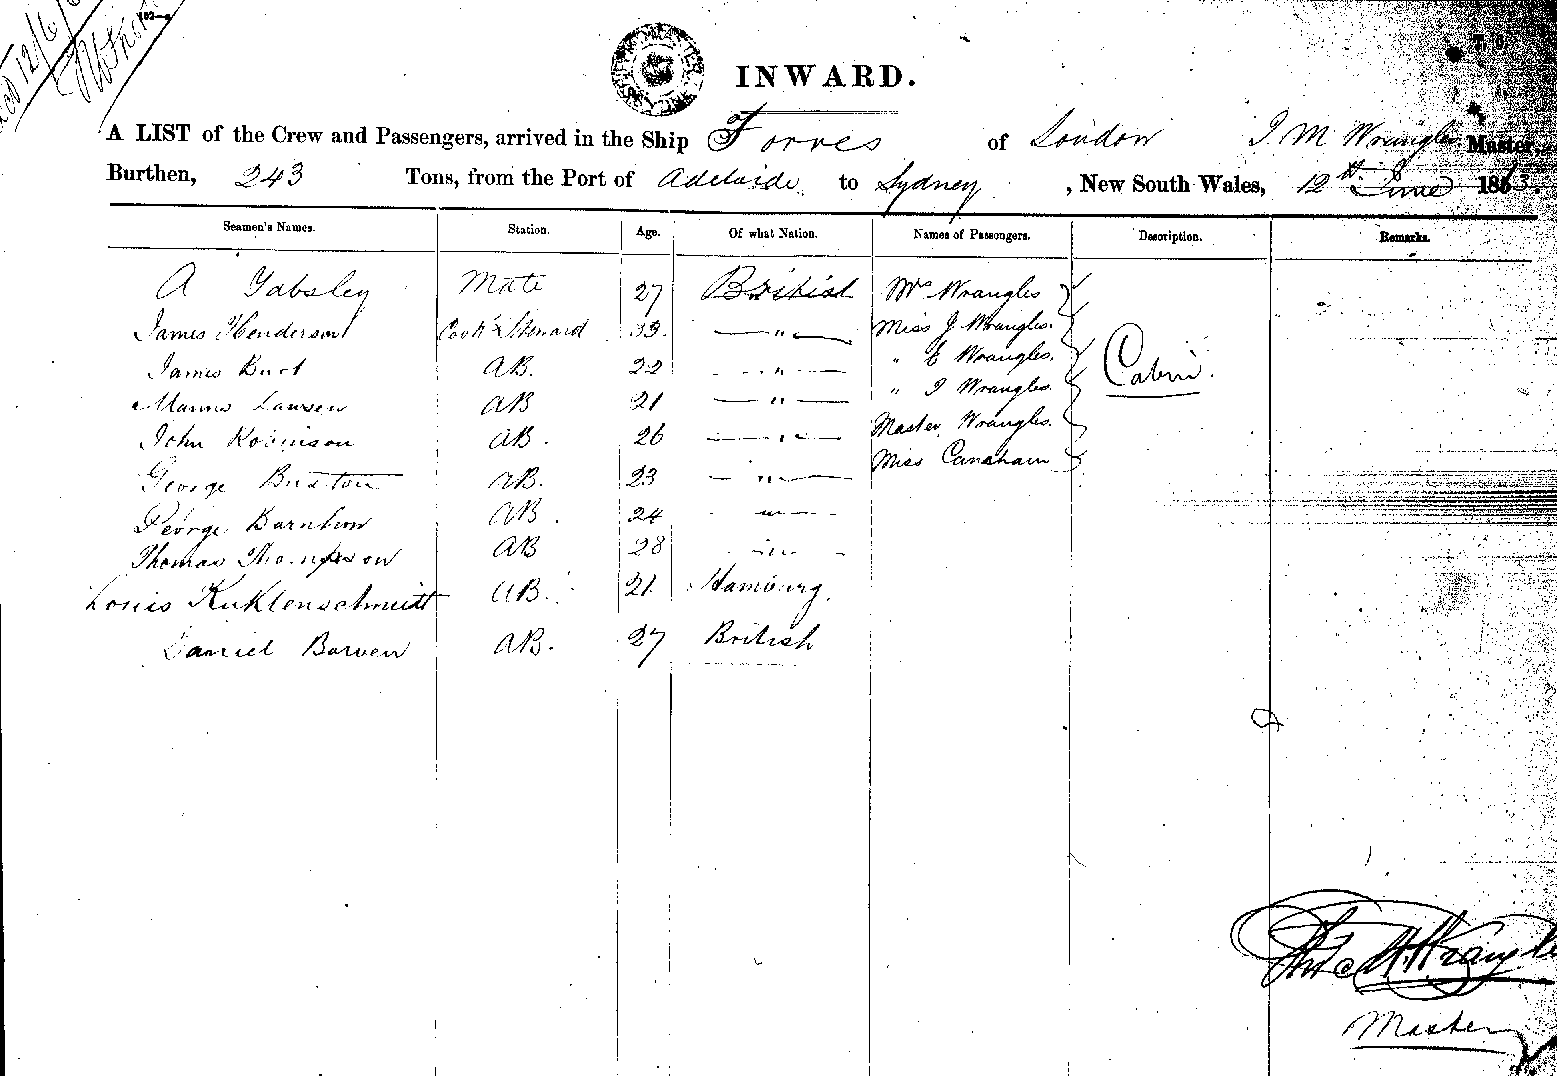 INWARD.
A LIST of the Crew and Passengers, arrived in the Ship Torres of London J M Wrangles Master,
Burthen, 243 Tons, from the Port of Adelaide to Sydney, New South Wales, 12th June 1863.
Seamen's Names. Station. Age. Of what Nation. Names of Passengers. Description. Remarks.
A Yabsley Mate 27 British Mrs Wrangles
James Henderson Cook & Steward 33 " Miss J Wrangles.
James Burt AB. 22 " " E Wrangles. Cabin.
Manns Lawsen AB 21 " " I Wrangles.
John Robinson AB. 26 " Master Wrangles.
George Buxton AB. 23 " Miss Cansham
George Barnhow AB. 24 "
Thomas Thompson AB 28 "
Louis Kuklenschmidt AB. 21 Hamburg.
Daniel Bowen AB. 27 British
Wrangles
Master